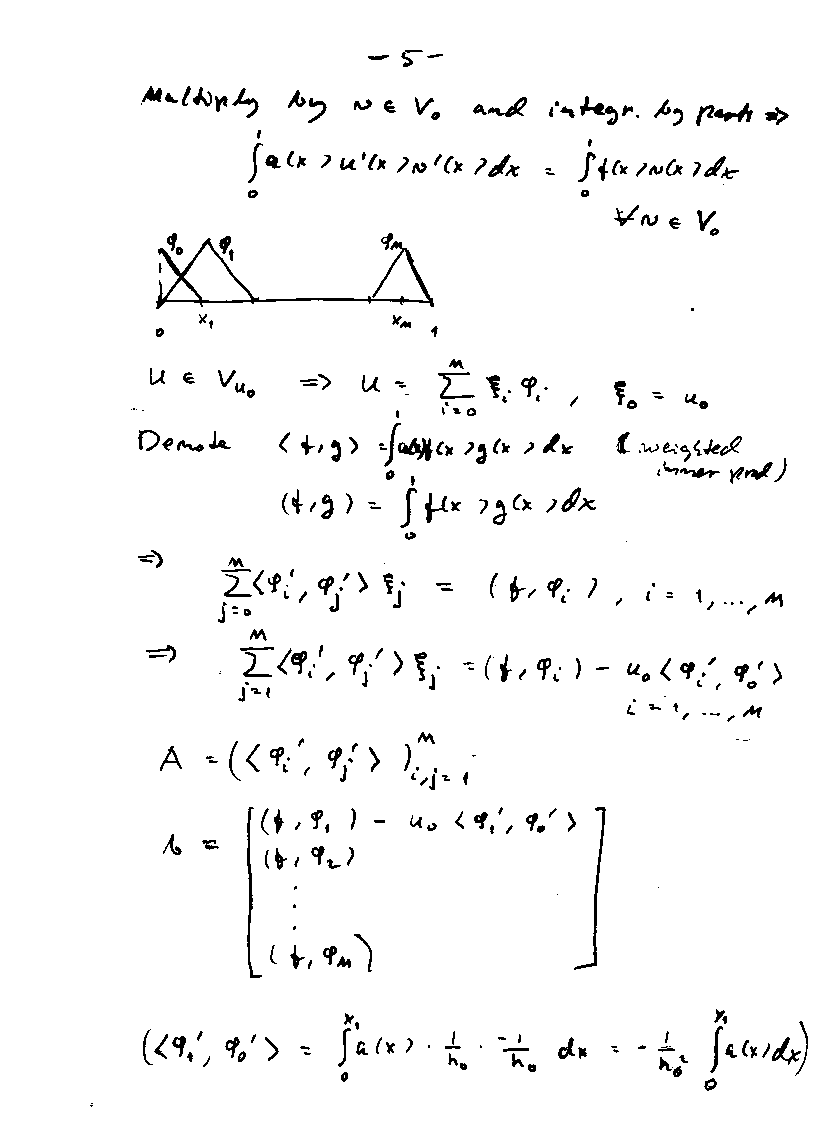 - 5 -
Multiply by v ∈ V₀ and integr. by parts ⇒
∫₀¹ a(x)u'(x)v'(x)dx = ∫₀¹ f(x)v(x)dx
∀v ∈ V₀
φ₀ φ₁ φ_M
0 x₁ x_M 1
U ∈ V_{u₀} ⇒ U = Σ_{i=0}^{M} ξ_i φ_i , ξ₀ = u₀
Denote ⟨f,g⟩ = ∫₀¹ a(x)f(x)g(x)dx (weighted
inner prod)
(f,g) = ∫₀¹ f(x)g(x)dx
⇒ Σ_{j=0}^{M} ⟨φ_i', φ_j'⟩ ξ_j = (f, φ_i) , i = 1, ..., M
⇒ Σ_{j=1}^{M} ⟨φ_i', φ_j'⟩ ξ_j = (f, φ_i) - u₀⟨φ_i', φ₀'⟩
i = 1, ..., M
A = (⟨φ_i', φ_j'⟩)_{i,j=1}^{M}
b = [ (f, φ₁) - u₀ ⟨φ₁', φ₀'⟩
(f, φ₂)
⋮
(f, φ_M) ]
(⟨φ₁', φ₀'⟩ = ∫₀^{x₁} a(x) · 1/h₀ · -1/h₀ dx = - 1/h₀² ∫₀^{x₁} a(x)dx)